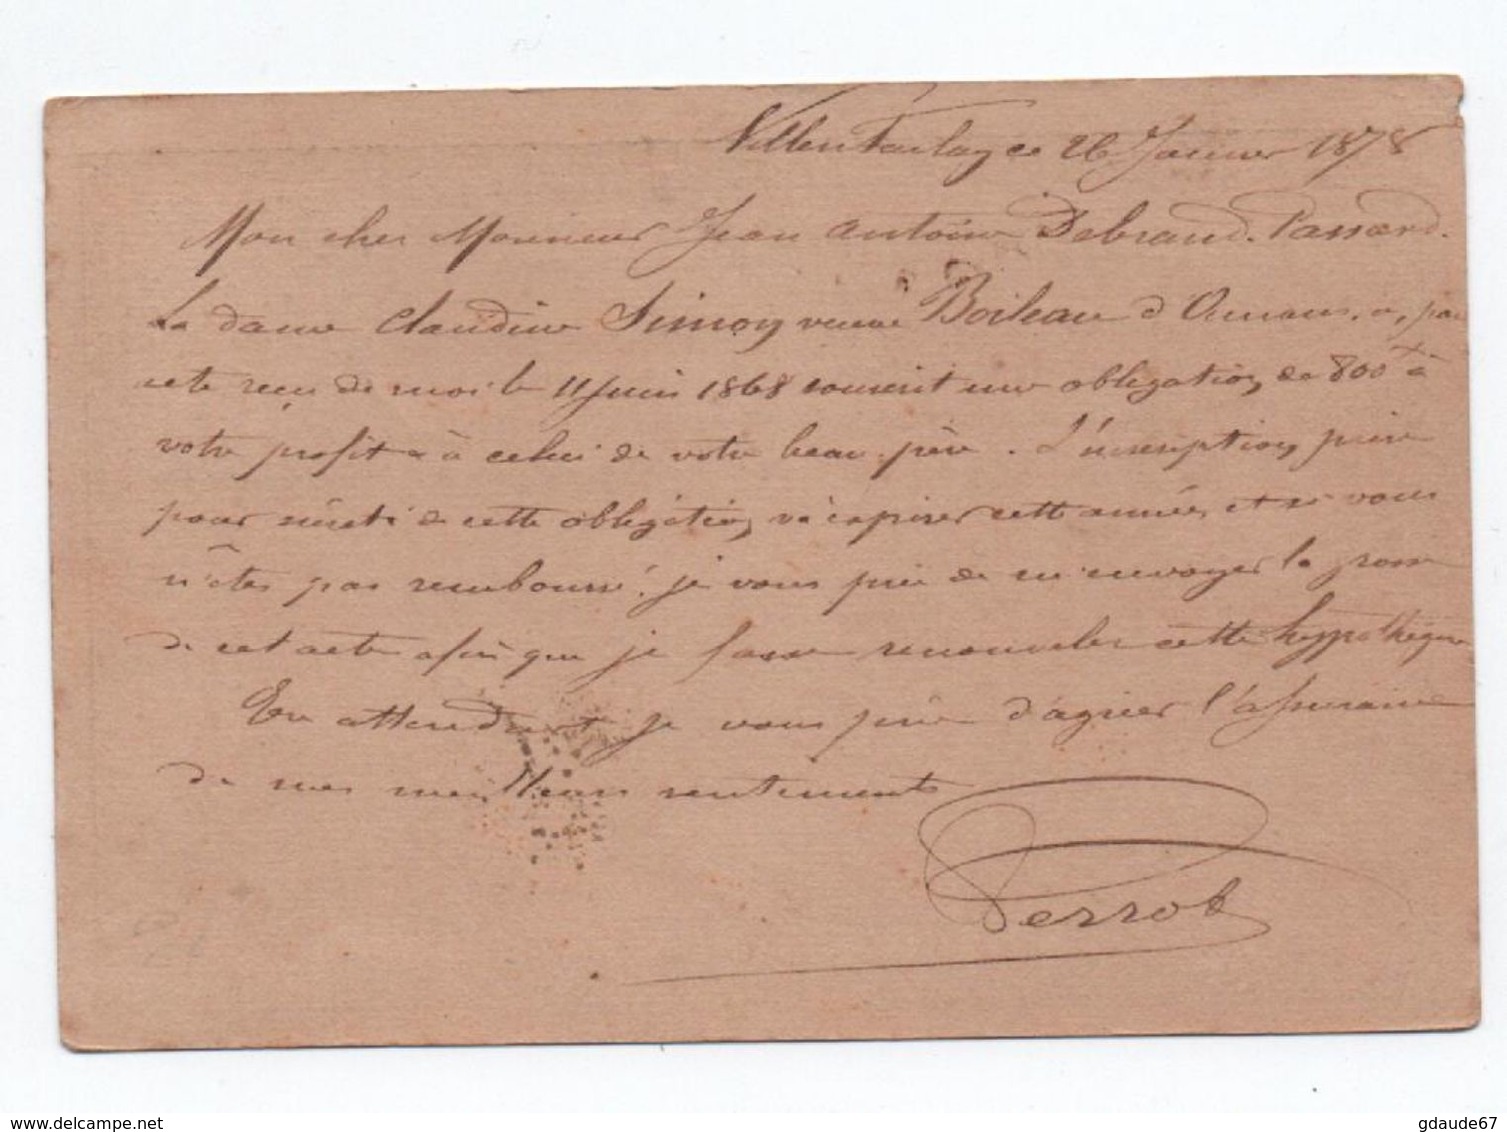 Villersfarlay ce 26 Janvier 1878
Mon cher Monsieur Jean Antoine Debrand. Passard.
La dame Claudine Simon veuve Boileau d'Ounans, a, par
acte reçu de moi le 11 Juin 1868 souscrit une obligation de 800f à
votre profit & à celui de votre beau-père. L'inscription prise
pour sûreté de cette obligation va expirer cette année et si vous
n'êtes pas remboursé, je vous prie de m'envoyer la grosse
de cet acte afin que je fasse renouveler cette hypothèque
En attendant je vous prie d'agréer l'assurance
de mes meilleurs sentiments
Perrot
gdaude67